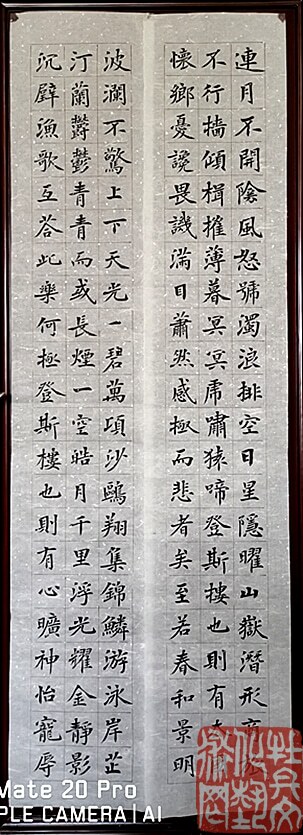 連月不開陰風怒號濁浪排空日星隱曜山嶽潛形商旅
不行檣傾楫摧薄暮冥冥虎嘯猿啼登斯樓也則有去國
懷鄉憂讒畏譏滿目蕭然感極而悲者矣至若春和景明
波瀾不驚上下天光一碧萬頃沙鷗翔集錦鱗游泳岸芷
汀蘭郁郁青青而或長煙一空皓月千里浮光耀金靜影
沉璧漁歌互荅此樂何極登斯樓也則有心曠神怡寵辱
Mate 20 Pro
PLE CAMERA | AI